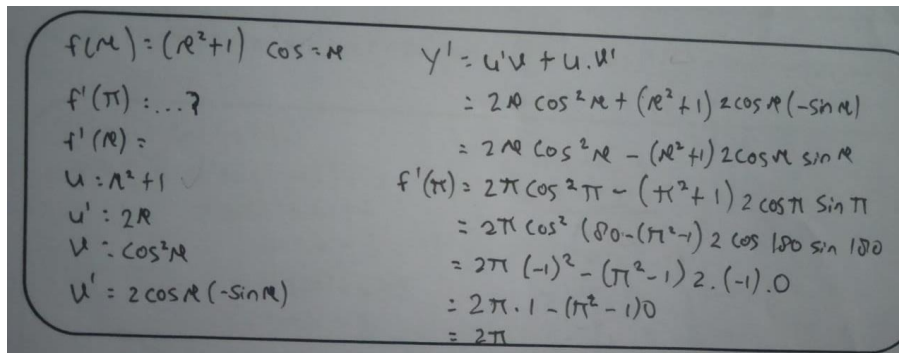 f(x) = (x²+1) cos = x
f'(π) : ...?
f'(x) =
u : x²+1
u' : 2x
v : cos²x
v' = 2 cos x (-sin x)
y' = u'v + u.v'
= 2x cos²x + (x²+1) 2 cos x (-sin x)
= 2x cos²x - (x²+1) 2 cos x sin x
f'(π) = 2π cos²π - (π²+1) 2 cos π sin π
= 2π cos² 180 - (π²-1) 2 cos 180 sin 180
= 2π (-1)² - (π²-1) 2. (-1) .0
= 2π . 1 - (π² - 1) 0
= 2π